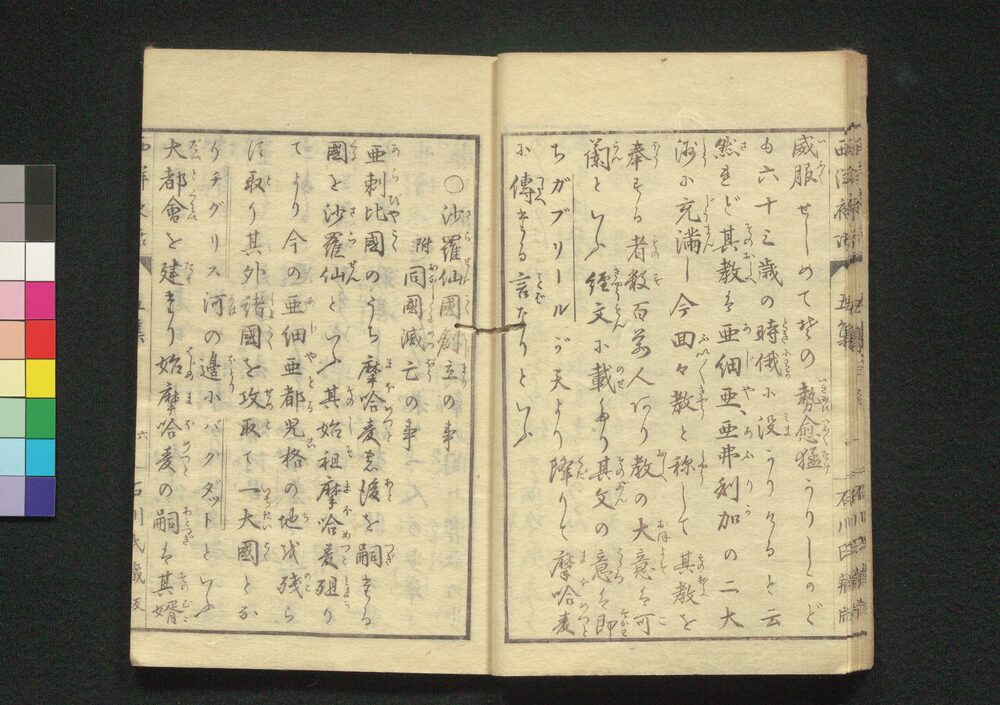 威服せしめて其の勢愈猛かりしかど
も六十三歳の時俄に没かりけると云
然れど其教は亜細亜、亜弗利加の二大
洲に充満し今回々教と称して其教を
奉ずる者数百万人あり教の大意は可
蘭といふ経文に載たり其文の意は即
ちガブリールが天より降りて摩哈麦
に傳たる言なりといふ
○沙羅仙國創立の事
附同國滅亡の事
亜剌比國のうち摩哈麦志後を嗣たる
國を沙羅仙といふ其始祖摩哈麦殂り
てより今の亜細亜都児格の地を残ら
ず取り其外諸國を攻取て一大國とな
りチグリス河の邊にバグダットといふ
大都會を建たり始摩哈麦の嗣は其婿
五集
石川氏蔵版